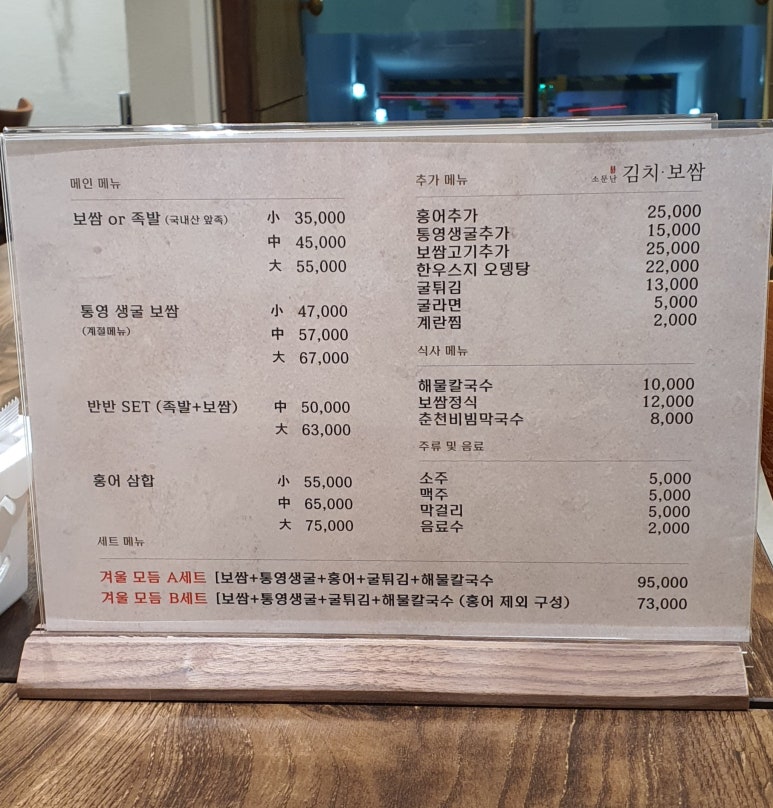 소문난 김치·보쌈
메인 메뉴
보쌈 or 족발 (국내산 앞족) 小 35,000
中 45,000
大 55,000
통영 생굴 보쌈 小 47,000
(계절메뉴) 中 57,000
大 67,000
반반 SET (족발+보쌈) 中 50,000
大 63,000
홍어 삼합 小 55,000
中 65,000
大 75,000
추가 메뉴
홍어추가 25,000
통영생굴추가 15,000
보쌈고기추가 25,000
한우스지 오뎅탕 22,000
굴튀김 13,000
굴라면 5,000
계란찜 2,000
식사 메뉴
해물칼국수 10,000
보쌈정식 12,000
춘천비빔막국수 8,000
주류 및 음료
소주 5,000
맥주 5,000
막걸리 5,000
음료수 2,000
세트 메뉴
겨울 모듬 A세트 [보쌈+통영생굴+홍어+굴튀김+해물칼국수 95,000
겨울 모듬 B세트 [보쌈+통영생굴+굴튀김+해물칼국수 (홍어 제외 구성) 73,000